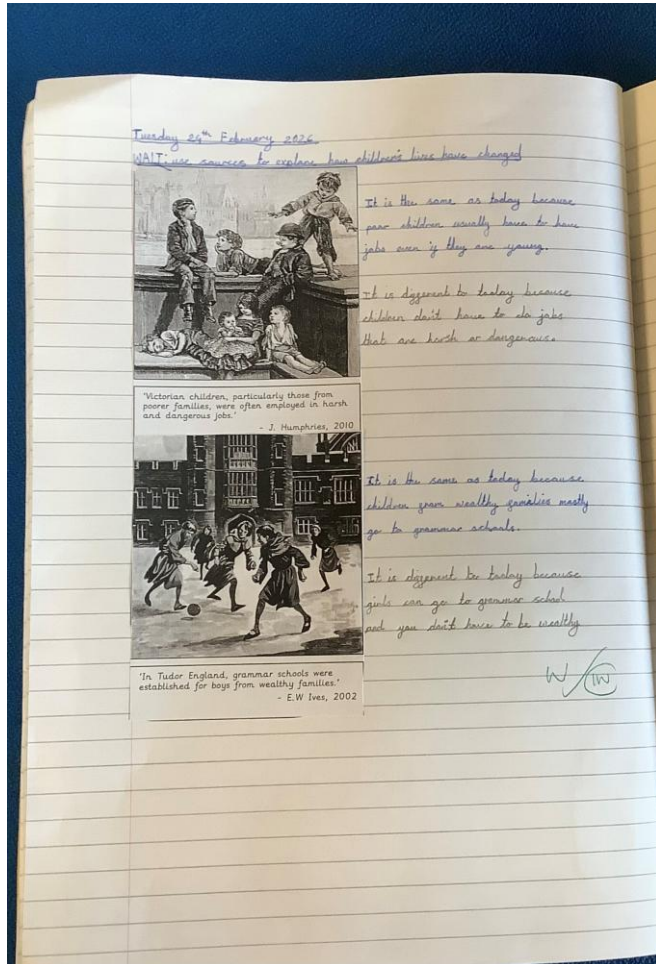 Tuesday 24th February 2026
WALT: use sources to explore how children's lives have changed
It is the same as today because
poor children usually have to have
jobs even if they are young.
It is different to today because
children don't have to do jobs
that are harsh or dangerous.
'Victorian children, particularly those from
poorer families, were often employed in harsh
and dangerous jobs.'
- J. Humphries, 2010
It is the same as today because
children from wealthy families mostly
go to grammar schools.
It is different to today because
girls can go to grammar school
and you don't have to be wealthy
'In Tudor England, grammar schools were
established for boys from wealthy families.'
- E.W Ives, 2002
W/IW